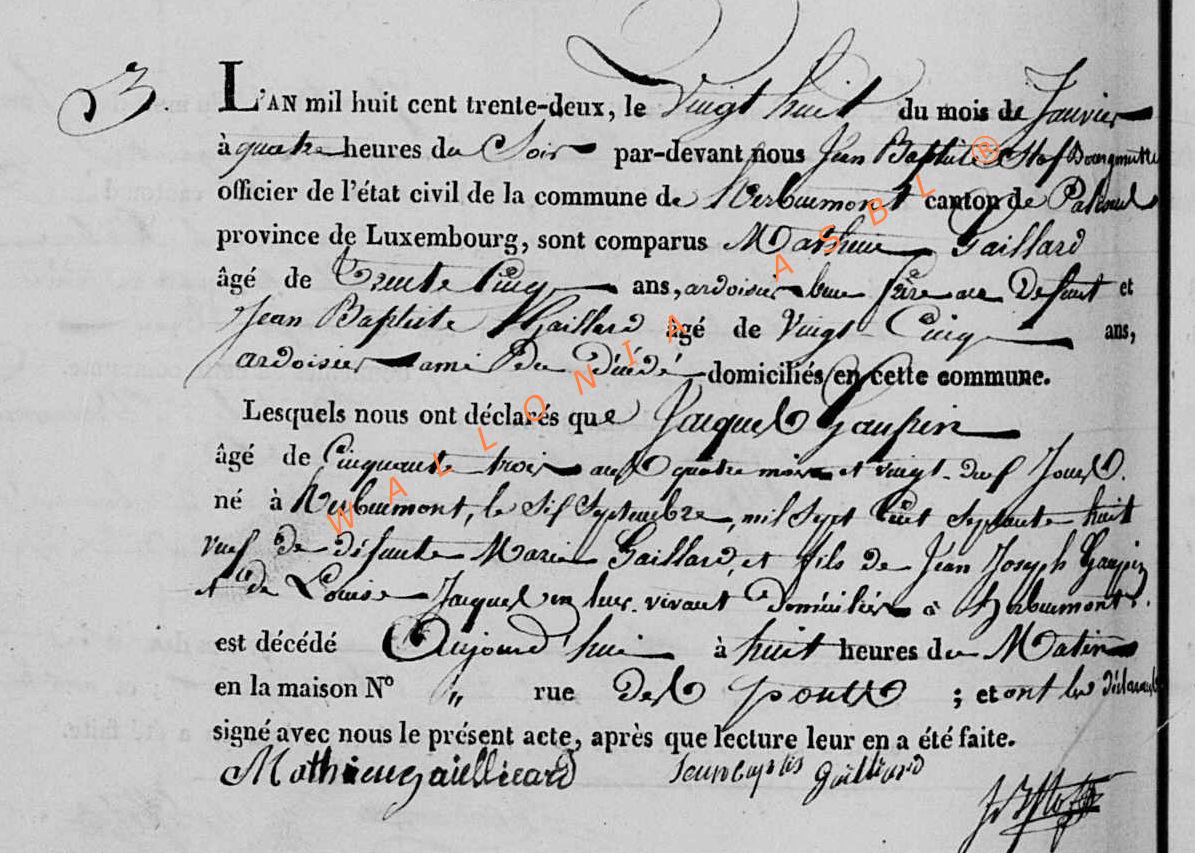 3
L'AN mil huit cent trente-deux, le Vingt huit du mois de Janvier
à quatre heures du Soir par-devant nous Jean Baptiste Stof Bourgmettre
officier de l'état civil de la commune de Herbuemont canton de Paliseul
province de Luxembourg, sont comparus Mathieu Gaillard
âgé de Trente Cinq ans, ardoisier beau frère au Defunt et
Jean Baptiste Gaillard âgé de Vingt Cinq ans,
ardoisier ami du décédé domiciliés en cette commune.
Lesquels nous ont déclarés que Jacques Gaupin
âgé de Cinquante trois ans quatre mois et vingt-deux Jours.
né à Herbuemont, le Six Septembre, mil Sept Cent Septante huit
veuf de défunte Marie Gaillard, et fils de Jean Joseph Gaupin
et de Louise Jacques en leur vivant domiciliés à Herbuemont.
est décédé Aujourd'hui à huit heures du Matin
en la maison N° " rue des ponts ; et ont les déclarants
signé avec nous le présent acte, après que lecture leur en a été faite.
Mathieu gaillieard Jean baptis gailliard
WALLONIA ASBL ®